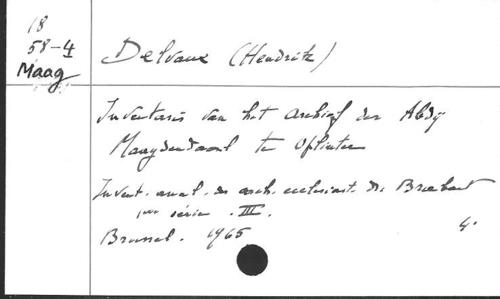 18
58-4
Maag
Delvaux (Hendrik)
Inventaris van het archief der Abdij
Maagdendaal te Oplinter
Invent. anal. des arch. ecclésiast. du Brabant
1ère série. III.
Brussel. 1965 4°